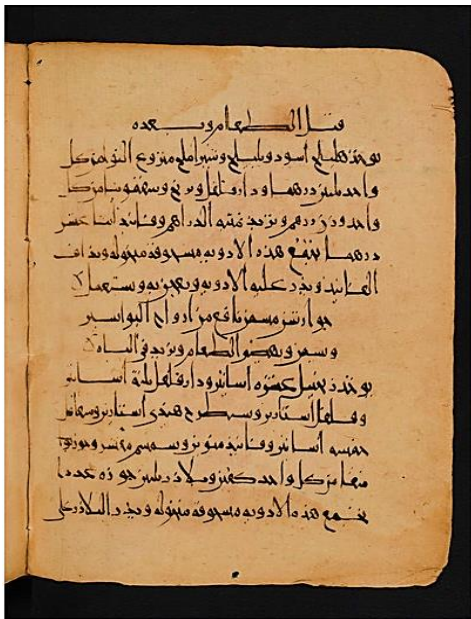 قبل الطعام وبعده
يوخذ هليلج اسود وبليلج وشير املج منزوع النوى من كل
واحد ثلثين درهما ودار فلفل
واحد وزن درهم ونريد ثمنية الدراهم وفانيذ اثنا عشر
درهما تجمع هذه الادويه مسحوقه منخوله ويذاف
الفانيذ ويذر عليه الادويه ويعجن به ويستعمل
جوارشن مسمن نافع من ارواح البواسير
ويسمن ويهضم الطعام ويزيد في الباه
يوخذ زنجبيل عشره اساتير ودار فلفل ثلثة اساتير
وفلفل استارين وسيطرج هندي استارين
خمسه اساتير وفانيذ منوين وسمسم مقشر وجوز
منقا من كل واحد كفين وبلاذر ثلثين جوزه عددا
تجمع هذه الادويه مسحوقه منخوله ويذر البلاذر على